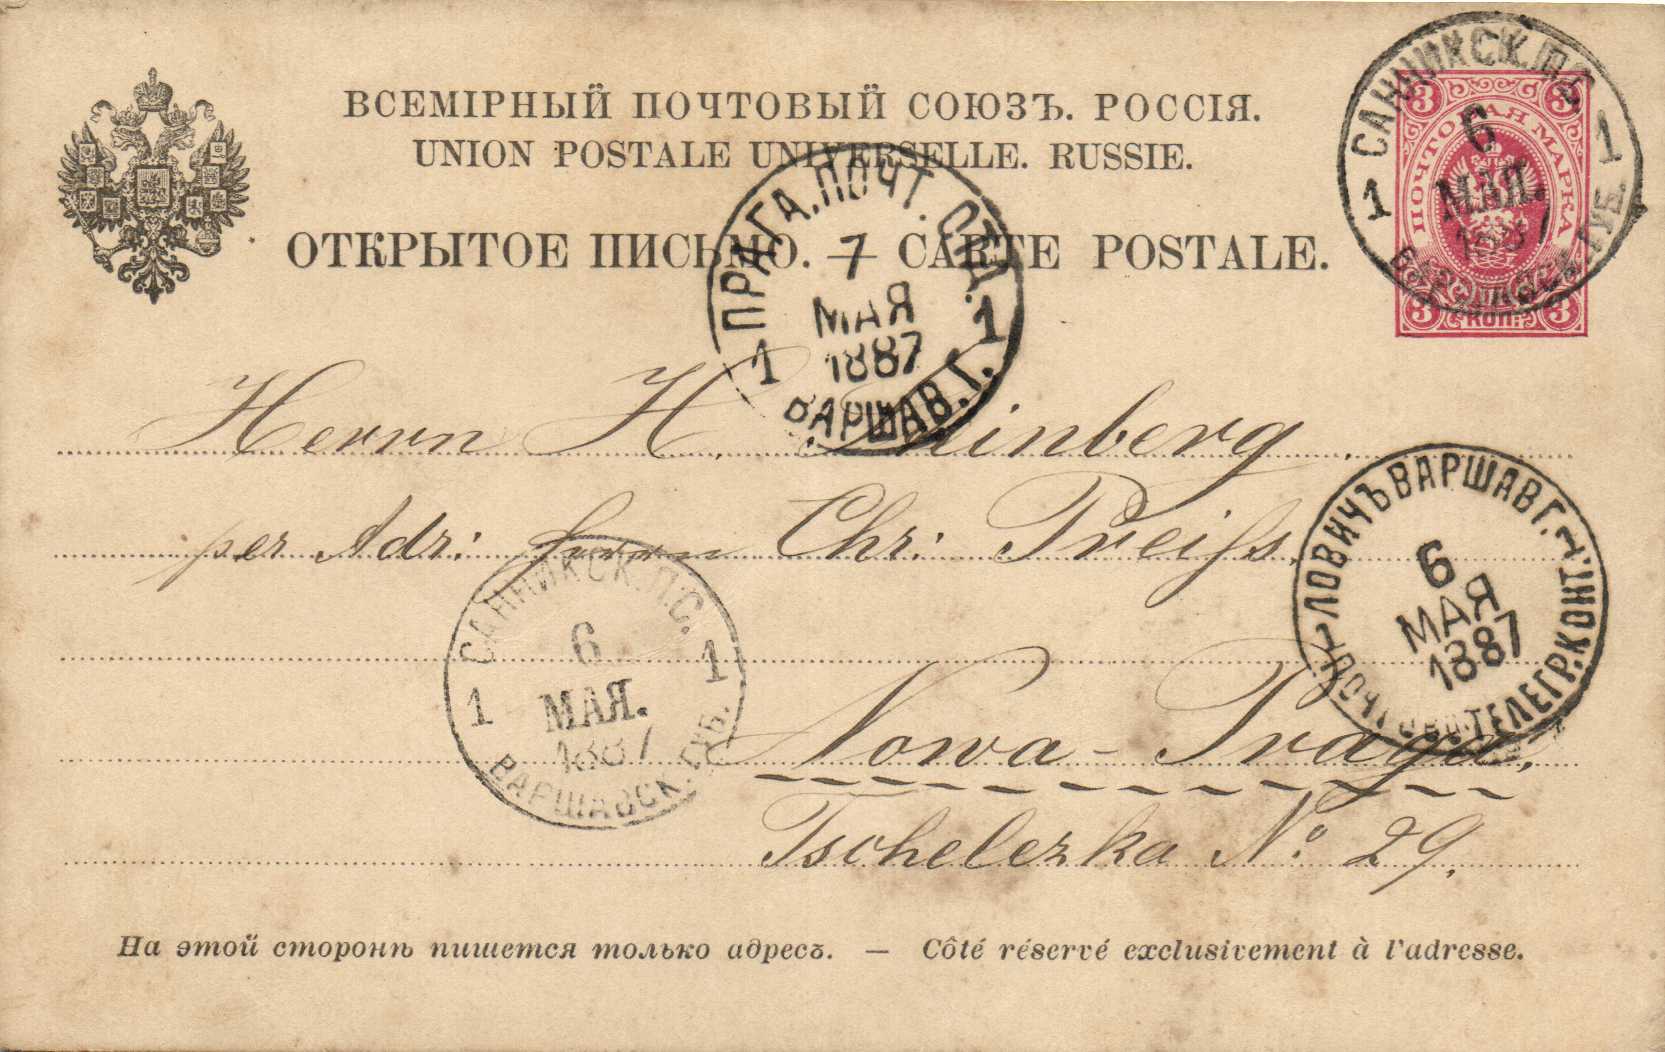 ВСЕМІРНЫЙ ПОЧТОВЫЙ СОЮЗЪ. РОССІЯ.
UNION POSTALE UNIVERSELLE. RUSSIE.
ОТКРЫТОЕ ПИСЬМО. — CARTE POSTALE.
3 3
ПОЧТОВАЯ МАРКА
3 КОП. 3
САННИКСК. П. С.
1 6 1
МАЯ.
1887
ВАРШАВСК. ГУБ.
ПРАГА. ПОЧТ. ОТД.
7
МАЯ
1 1887 1
ВАРШАВ. Г.
Herrn H.
per Adr: Herrn Chr: Preiſs.
ЛОВИЧЪ ВАРШАВ Г.
6
МАЯ
1887
ПОЧТОВО ТЕЛЕГР. КОНТ.
САННИКСК. П. С.
6
1 МАЯ. 1
1887
ВАРШАВСК. ГУБ.
Nowa-Praga.
Tschelezka No 29.
На этой сторонѣ пишется только адресъ. — Côté réservé exclusivement à l'adresse.